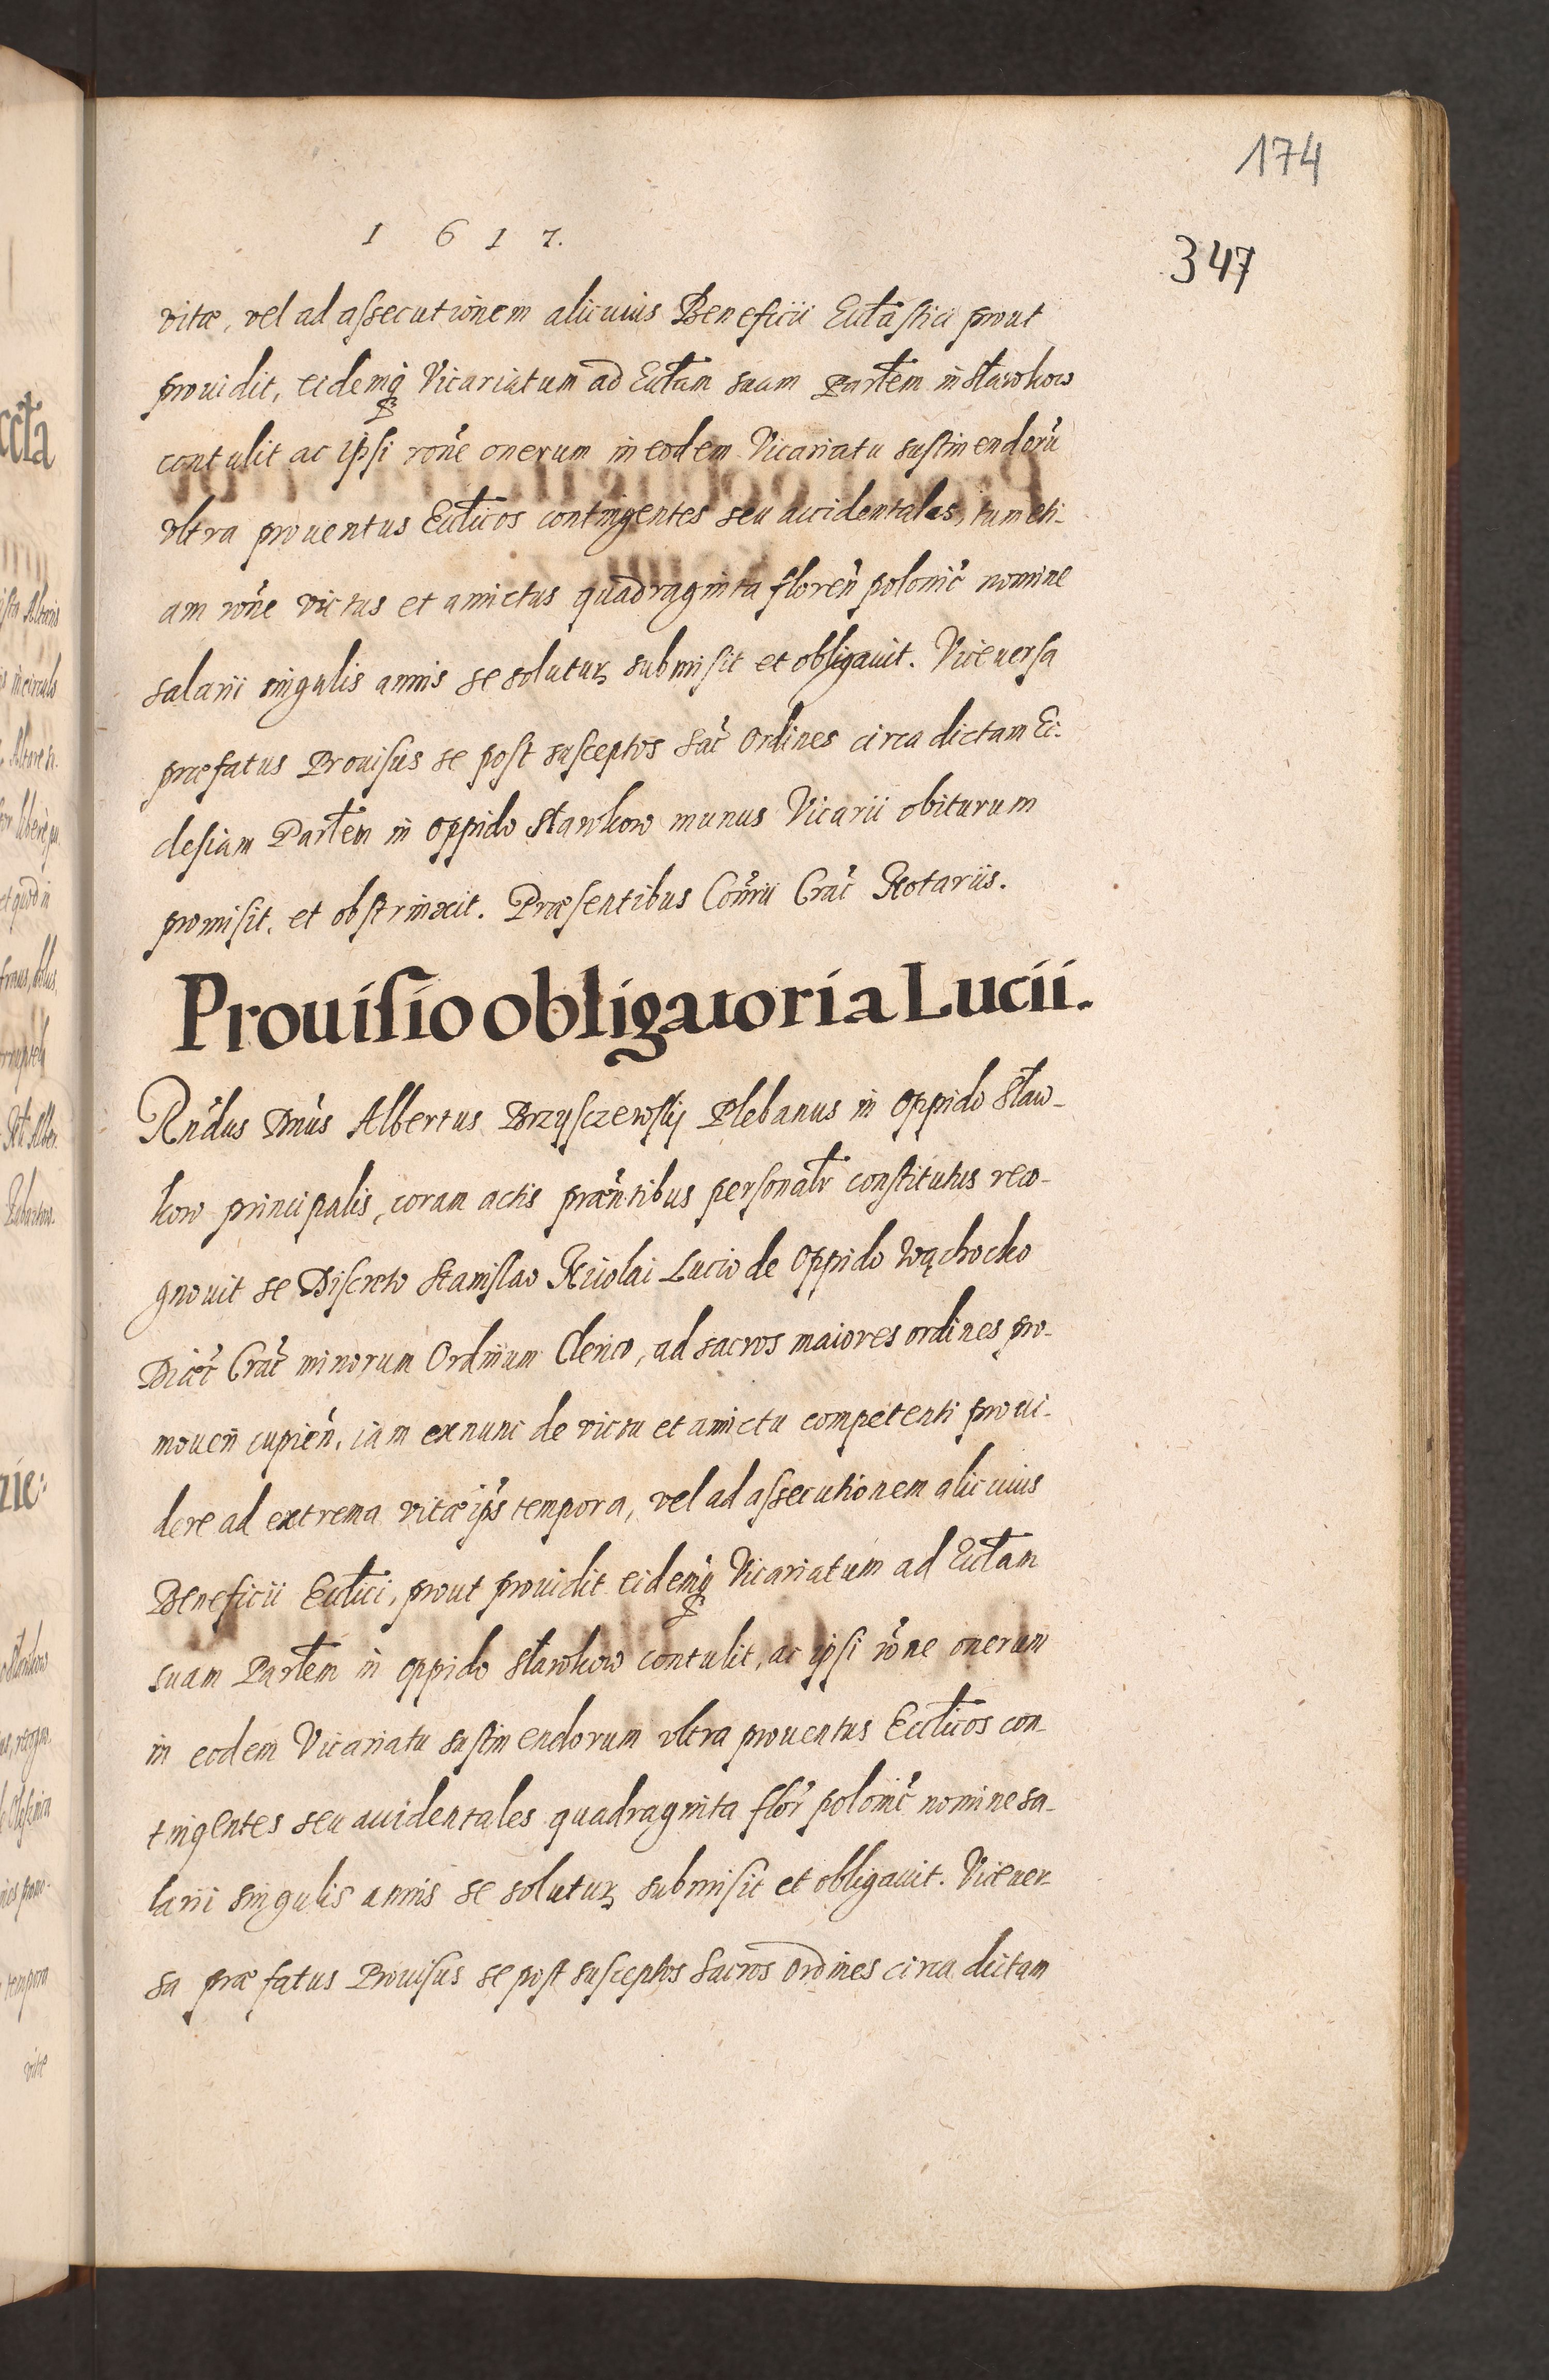 174
1617.
347
vitæ, vel ad assecutionem alicuius Beneficii Eccl̃astici prout
prouidit, eidemq̃ Vicariatum ad Eccłam suam Parłem in Sławkow
contulit ac ipsi rõne onerum in eodem Vicariatu sustinendorũ
vltra prouentus Ecclĩcos contingentes seu accidentales, tum eti-
am rõne victus et amictus quadraginta floreñ polonic̃ nomine
salarii singulis annis se soluturũ submisit et obligauit. Vice uersa
præfatus Prouisus se post susceptos Sac̃ Ordines circa dictam Ec-
clesiam Parłem in Oppido Sławkow munus Vicarii obiturum
promisit, et obstrinxit. Præsentibus Coñrii Crac̃ Notariis.
Prouisio obligatoria Lucii.
Rñdus Dñus Albertus Brzysczewskij Plebanus in Oppido Sław-
kow principalis, coram actis præñtibus personalr̃ constitutus reco-
gnouit se Discreto Stanislao Nicolai Lucio de Oppido Wąchocko
Diæc̃ Crac̃ minorum Ordinum Clerico, ad sacros maiores ordines pro-
moueñ cupieñ, iam ex nunc de victu et amictu competenti proui-
dere ad extrema vitæ ip̃s tempora, vel ad assecutionem alicuius
Beneficii Ecclĩci, prout prouidit eidemq̃ Vicariatum ad Eccłam
suam Parłem in Oppido Sławkow contulit, ac ipsi rõne onerum
in eodem Vicariatu sustinendorum vltra prouentus Ecclĩcos con-
tingentes seu accidentales quadraginta flor̃ polonic̃ nomine sa-
larii singulis annis se soluturũ submisit et obligauit. Vice uer-
sa præfatus Prouisus se post susceptos Sacros Ordines circa dictam